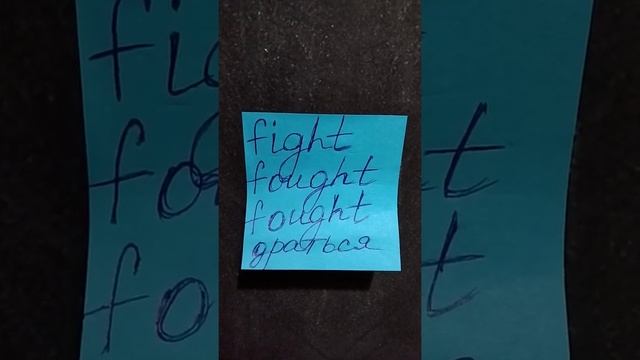 fight
fought
fought
драться